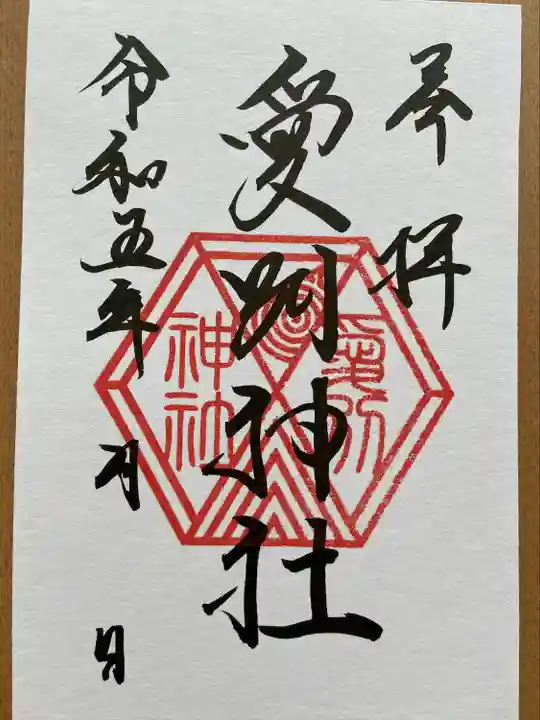 奉拝
愛別神社
令和五年 月 日
愛別
神社